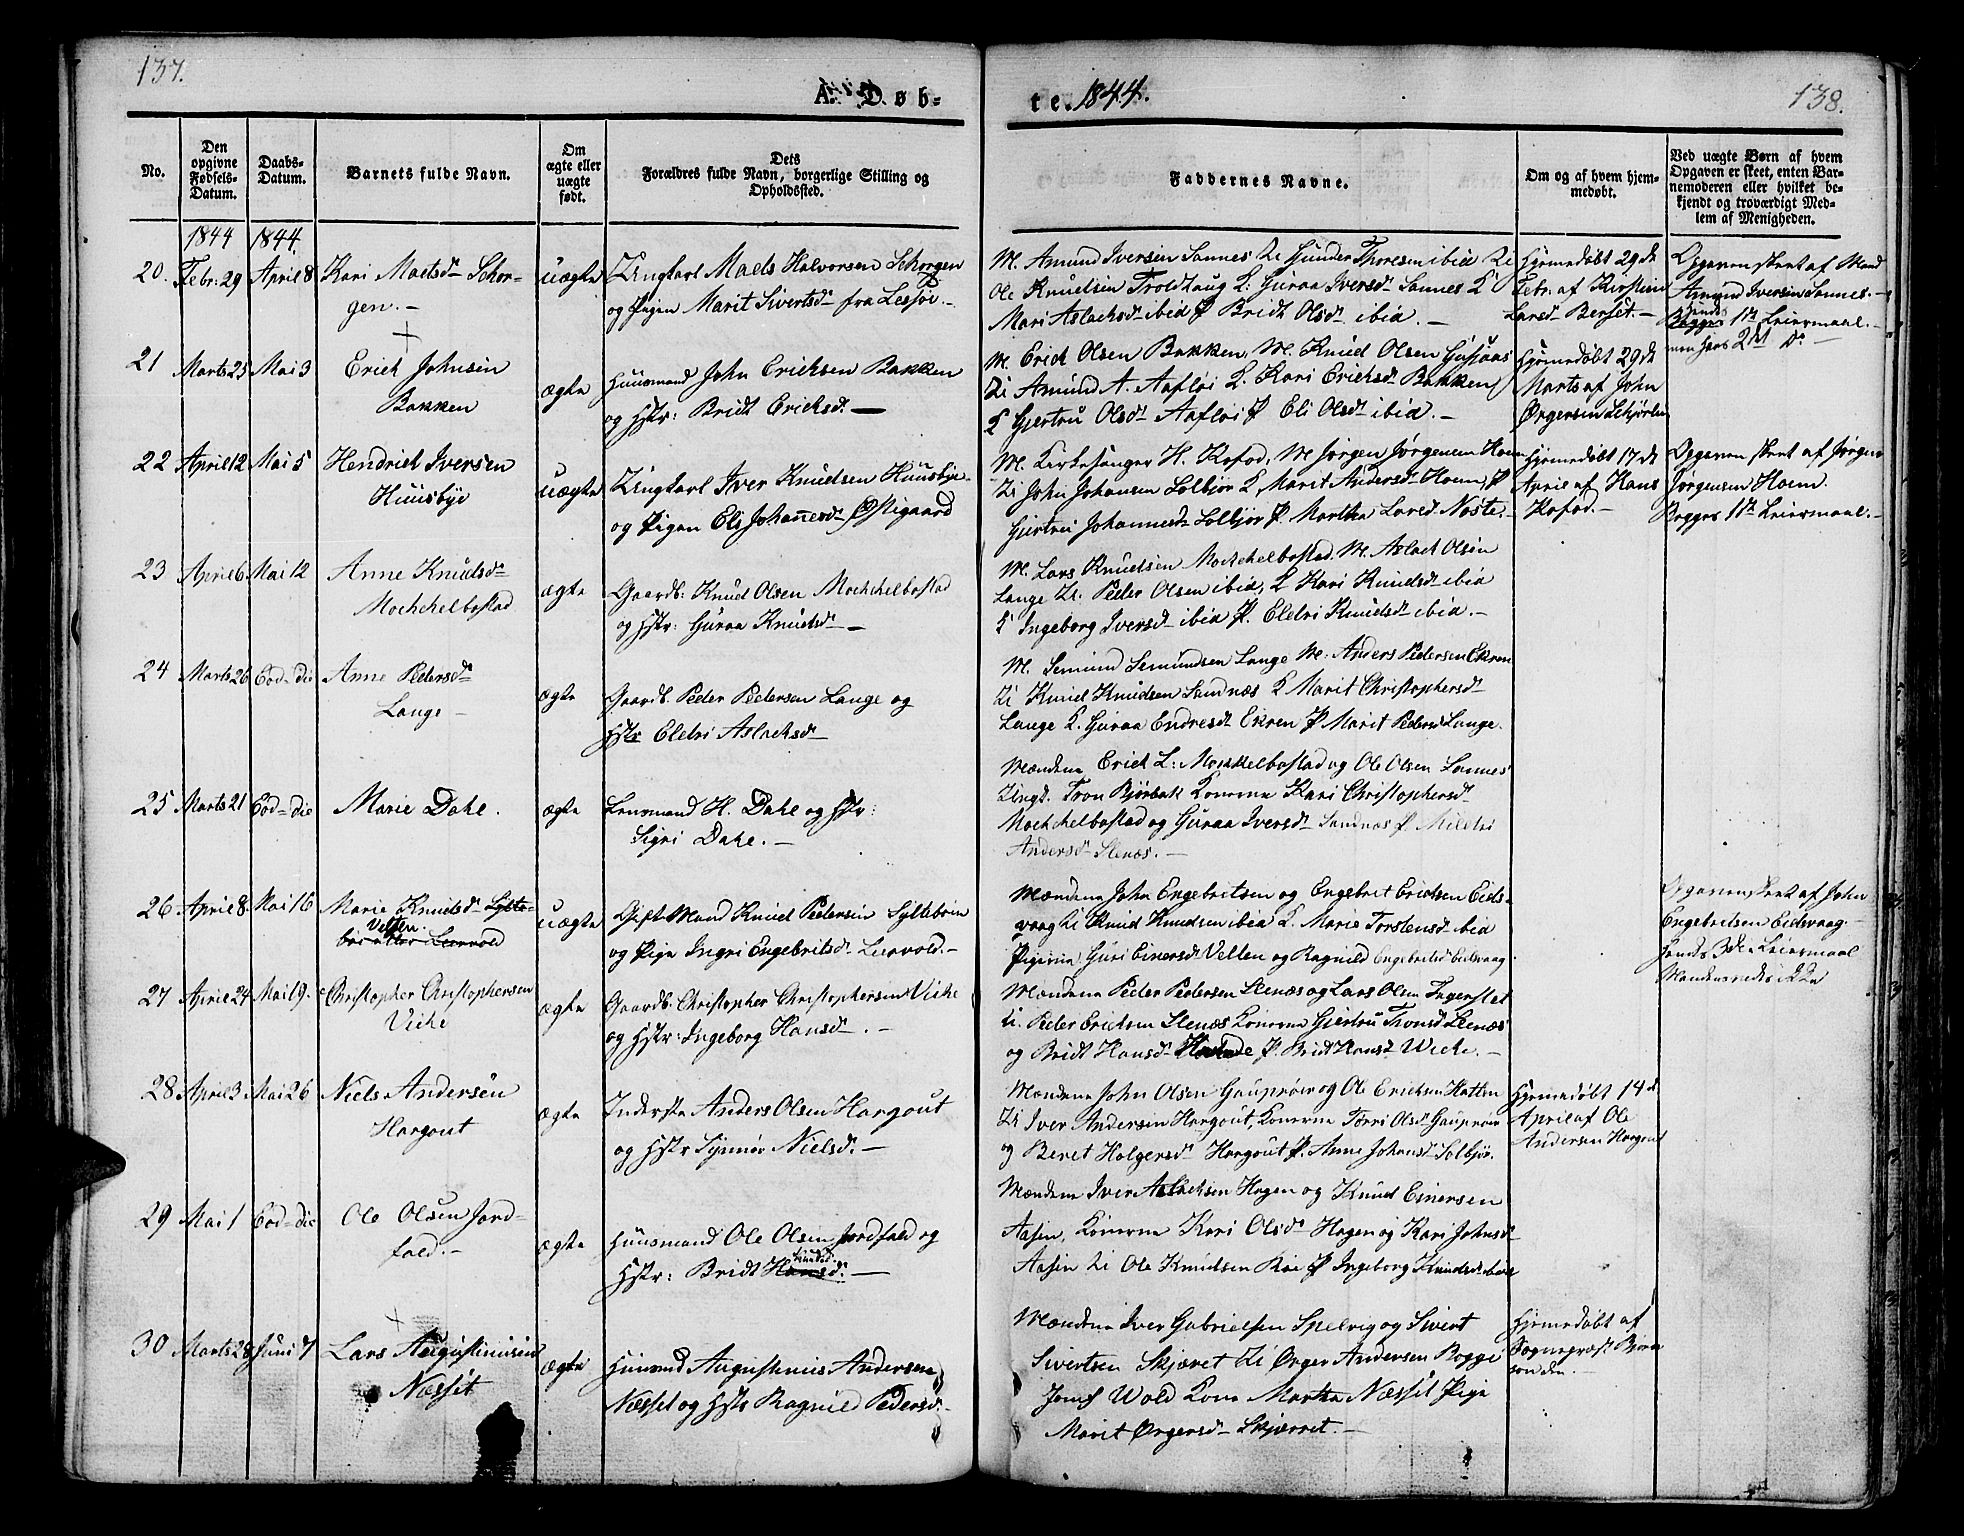 137.
A. Døb-
te. 1844.
138.
No.
Den opgivne Fødsels-Datum.
Daabs-Datum.
Barnets fulde Navn.
Om ægte eller uægte født.
Dets Forældres fulde Navn, borgerlige Stilling og Opholdssted.
Faddernes Navne.
Om og af hvem hjem-medøbt.
Ved uægte Børn af hvem Opgaven er skeet, enten Bar-nemoderen eller hvilket be-kjendt og troværdigt Med-lem af Menigheden.
1844 1844.
20. Febr. 29 April 8 Kari Matsd Schor-
gen.-
uægte
Ungkarl Mats Halvorsen Schorgen
og Pigen Marit Sivertsd fra Lessøe.-
M. Amund Iversen Sannes Ti Gunder Thoresen ibid Ti
Ole Knudsen Troldtaug K. Guraa Iversd Sannes K
Mari Aslachsd ibid P Bridt Olsd ibid.-
Hjemmedøbt 29 de
Febr. af Kirstin
Larsd Berset.-
Opgaven skeet af Mand
Amund Iversen Sannes.-
1te Leiermaal.-
men hans 2det Do-
21 Marts 25 Mai 3 Erich Johnsen
Bakken
ægte
Huusmand John Erichsen Bakken
og Hstr: Bridt Erichsd.-
M. Erich Olsen Bakken, M. Knud Olsen Gusjaas
Ti Amund A. Aafløi K. Kari Erichsd Bakken
K Gjertru Olsd Aafløi P Eli Olsd ibid.-
Hjemmedøbt 29 de
Marts af John
Ørgersen Schjørlen
22 April 12 Mai 5 Hendrich Iversen
Huusbye
uægte
Ungkarl Iver Knudsen Huusbye
og Pigen Eli Johannesd Opstigaard
M. Kirkesanger H. Kofod. M Jørgen Jørgensen Hoem
Ti John Johansen Solbjør K. Marit Andersd Hoem, P
Gjertru Johannesd Solbjør P. Martha Larsd Noste.-
Hjemmedøbt 17 de
April af Hans
Kofod.-
Opgaven skeet af Jørgen
Jørgensen Hoem.
Begges 1te Leiermaal.-
23 April 6 Mai 12 Anne Knudsd
Mochelbostad
ægte
Gaardb: Knud Olsen Mochelbostad
og Hstr: Guraa Knudsd.-
M. Lars Knudsen Mochelbostad. M. Aslach Olsen
Lange Ti. Peder Olsen ibid, K Kari Knudsd ibid
K Ingeborg Iversd ibid P. Eldri Knudsd ibid.-
24 Marts 26 Eod-die Anne Pedersd
Lange-
ægte
Gaardb. Peder Pedersen Lange og
Hstr Eldri Aslachsd-
M. Semund Semundsen Lange M: Anders Pedersen Ekren
Ti Knud Knudsen Sandnæs K Marit Christophersd
Lange K. Guraa Endresd Ekren P Marit Pedersd Lange.
25 Marts 21 Eod-die Marie Dahe.
ægte
Lensmand H. Dahe og Hstr:
Sigri Dahe.-
Mændene Erich L: Mochelbostad og Ole Olsen Sannes
Ungk. Tron Bjørbæk Konerne Kari Christophersd
Mochelbostad og Guraa Iversd Sandnæs P Mildri
Andersd Slenæs.-
26 April 8 Mai 16 Marie Knudsd Sylte-
Velten.
bøe eller Leervold
uægte
Gift Mand Knud Pedersen Syltebøen
og Pige Ingri Engebritsd. Leervold.-
Mændene John Engebritsen og Engebret Erichsen Eids-
vaag Ti Knud Knudsen ibid K. Marie Torstensd ibid
Pigerne Guri Einersd Velten og Ragnild Engebritsd Eidsvaag
Opgaven skeet af John
Engebritsen Eidsvaag
hendes 3die Leiermaal
27 April 24 Mai 19. Christopher Christophersen
Viche
ægte
Gaardb: Christopher Christophersen Viche
og Hstr: Ingeborg Hansd.-
Mændene Peder Pedersen Slenæs og Lars Olsen Ingerslet
U. Peder Erichsen Slenæs Konerne Gjertru Tronsd Slenæs
og Bridt Hansd P. Bridt Hansd Wiche.-
28 April 3 Mai 26 Niels Andersen
Hargout
ægte
Inderste Anders Olsen Hargout
og Hstr Synnøv Nielsd.-
Mændene John Olsen Gauprøer og Ole Erichsen Hatten
Ti Iver Andersen Hargout, Konerne Torri Olsd Gauprøer
og Beret Holgersd Hargout P. Anne Johansd Solbjør.
Hjemmedøbt 14 d
April af Ole
Andersen Hargout
29 Mai 1 Eod-die Ole Olsen Jord-
fald.-
ægte
Huusmand Ole Olsen Jordfald og
Hstr: Bridt Hansd.-
Mændene Iver Aslachsen Hagen og Knud Einersen
Aasen, Konerne Kari Olsd Hagen og Kari Johnsd
Aasen Ti Ole Knudsen Röe P Ingeborg Knudsd ibid
30 Marts 28 Juni 7 Lars Augustinusen
Næsset
ægte
Huusmd Augustinus Andersen
Næsset og Hstr Ragnild Pedersd.-
Mændene Iver Gabrielsen Spelvig og Sivert
Sivertsen Skjæret Ti Ørger Andersen Boggi
Wold Kone Martha Næsset Pige
Marit Ørgersd Skjærret.-
Hjemmedøbt af
Sogneprest Bjørn
son den.-